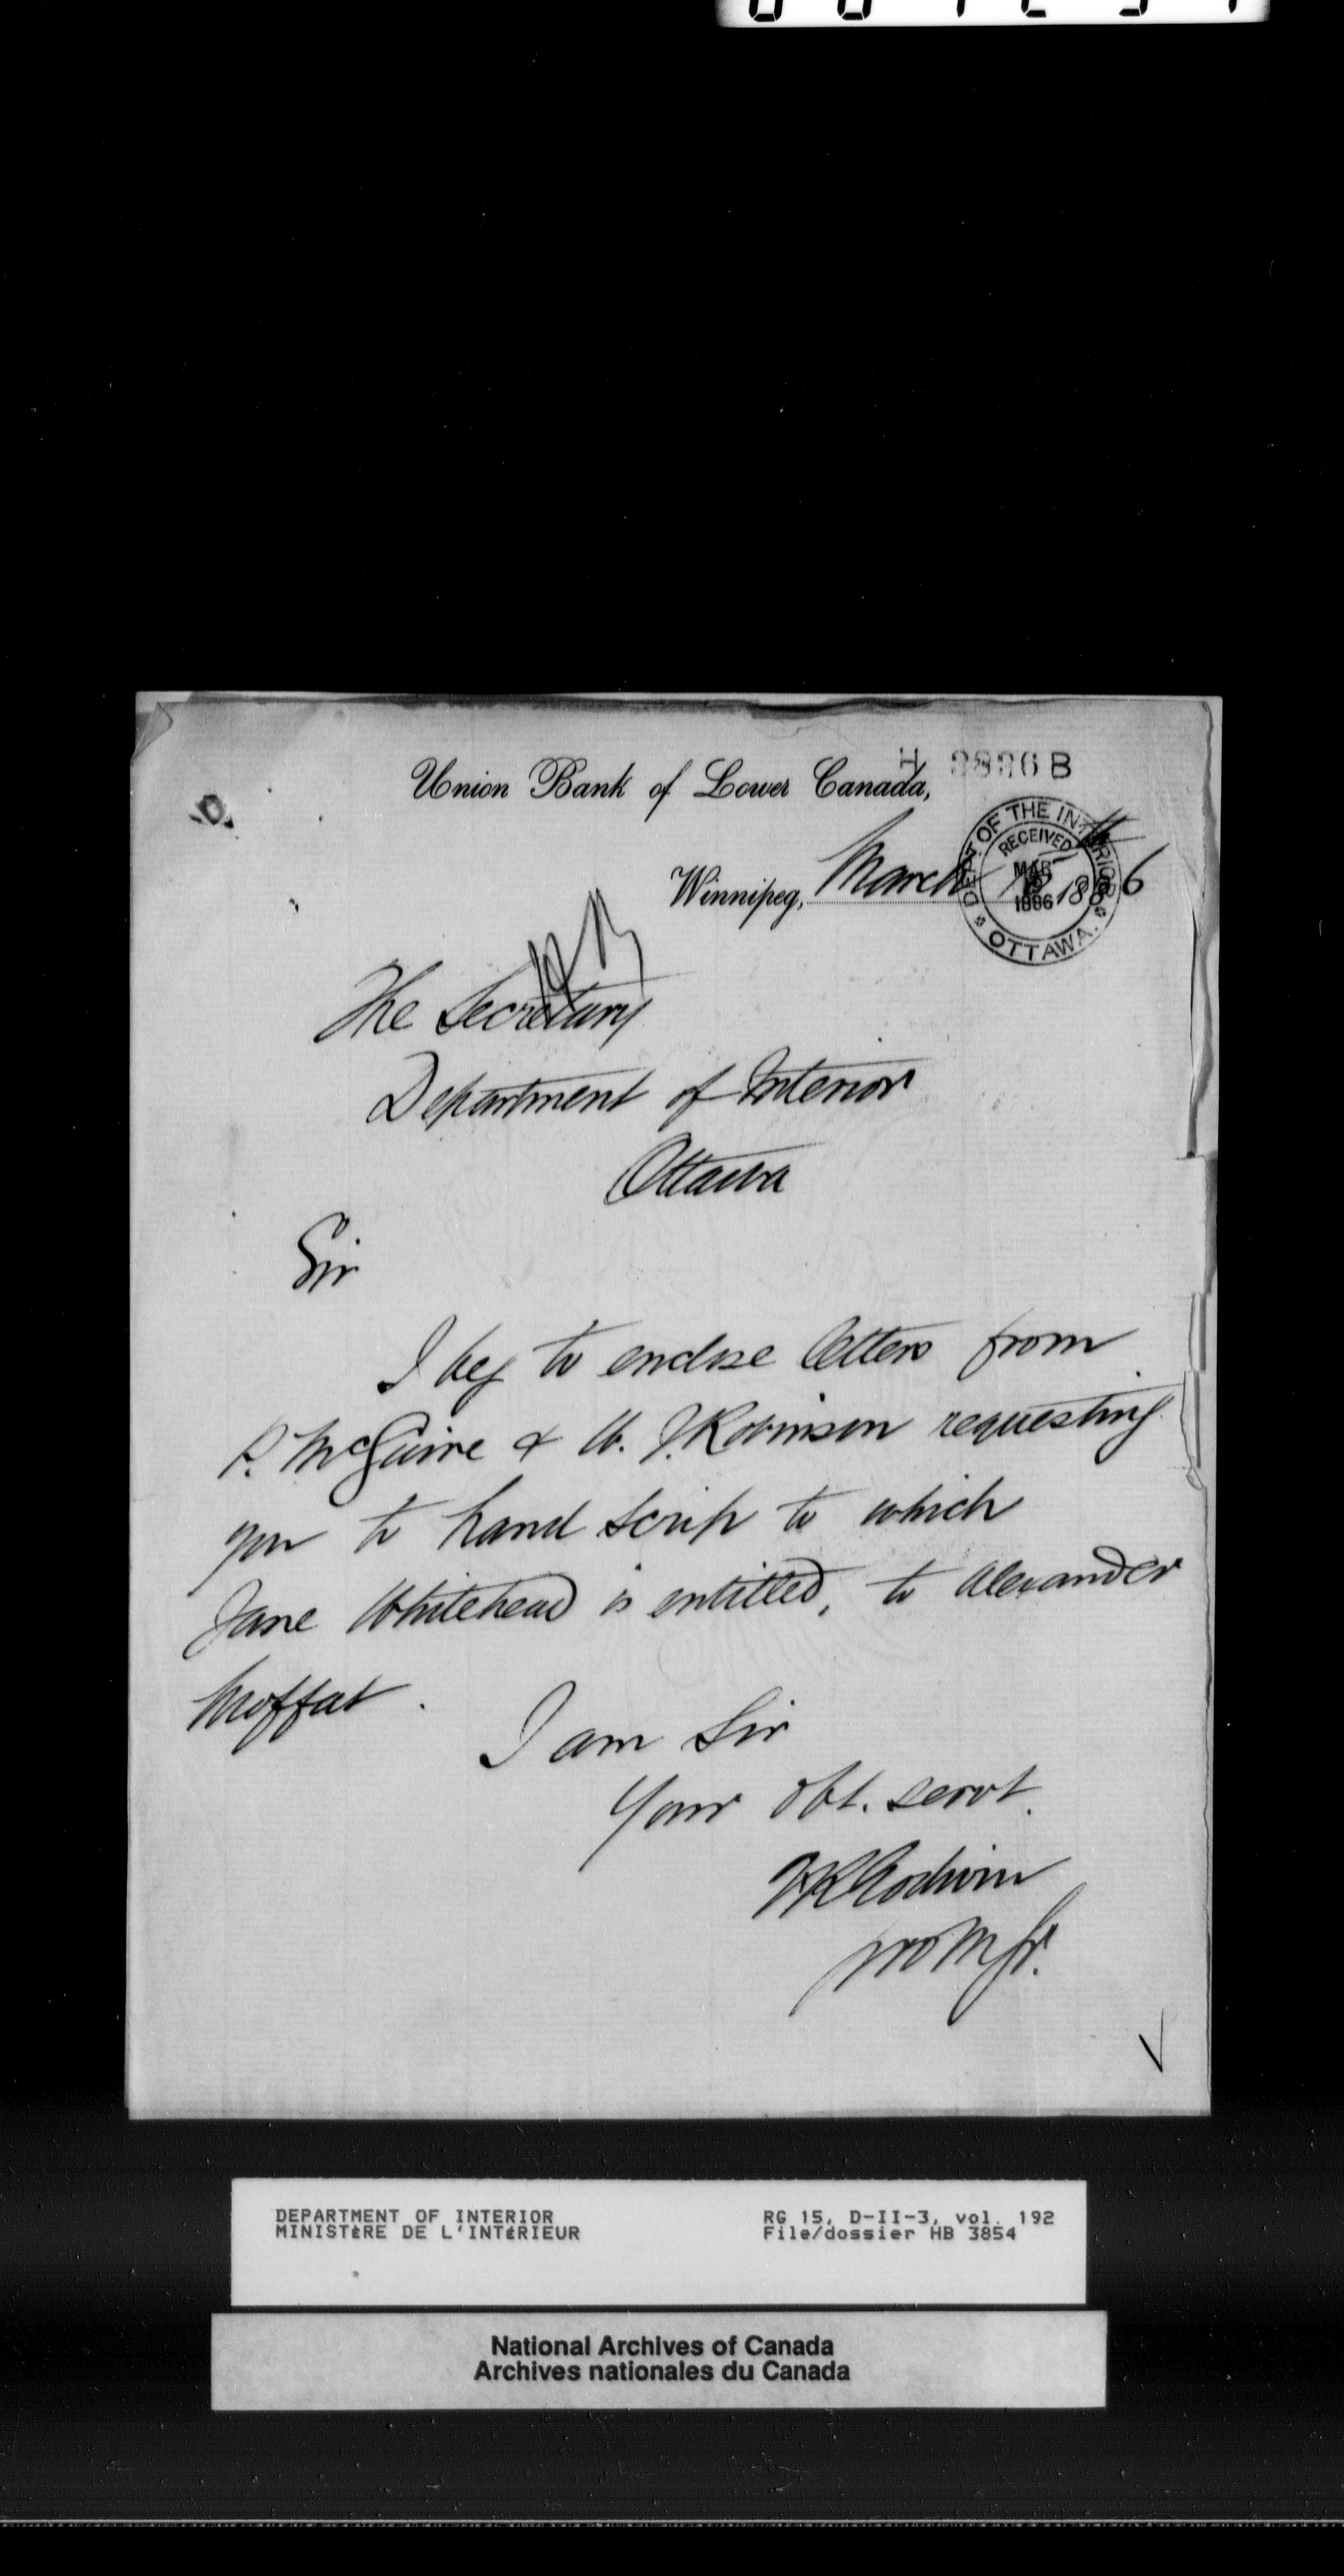 H 9886 B
Union Bank of Lower Canada,
DEPT. OF THE INTERIOR
RECEIVED
MAR
1886
OTTAWA.
Winnipeg, March 1886
The Secretary
Department of Interior
Ottawa
Sir
I beg to enclose letters from
P. McGuire & W. J. Robinson requesting
you to hand scrip to which
Jane Whitehead is entitled, to Alexander
Moffat.
I am Sir
Your obt. servt.
Godwin
pro Mgr.
DEPARTMENT OF INTERIOR
MINISTÈRE DE L'INTÉRIEUR
RG 15, D-II-3, vol. 192
File/dossier HB 3854
National Archives of Canada
Archives nationales du Canada